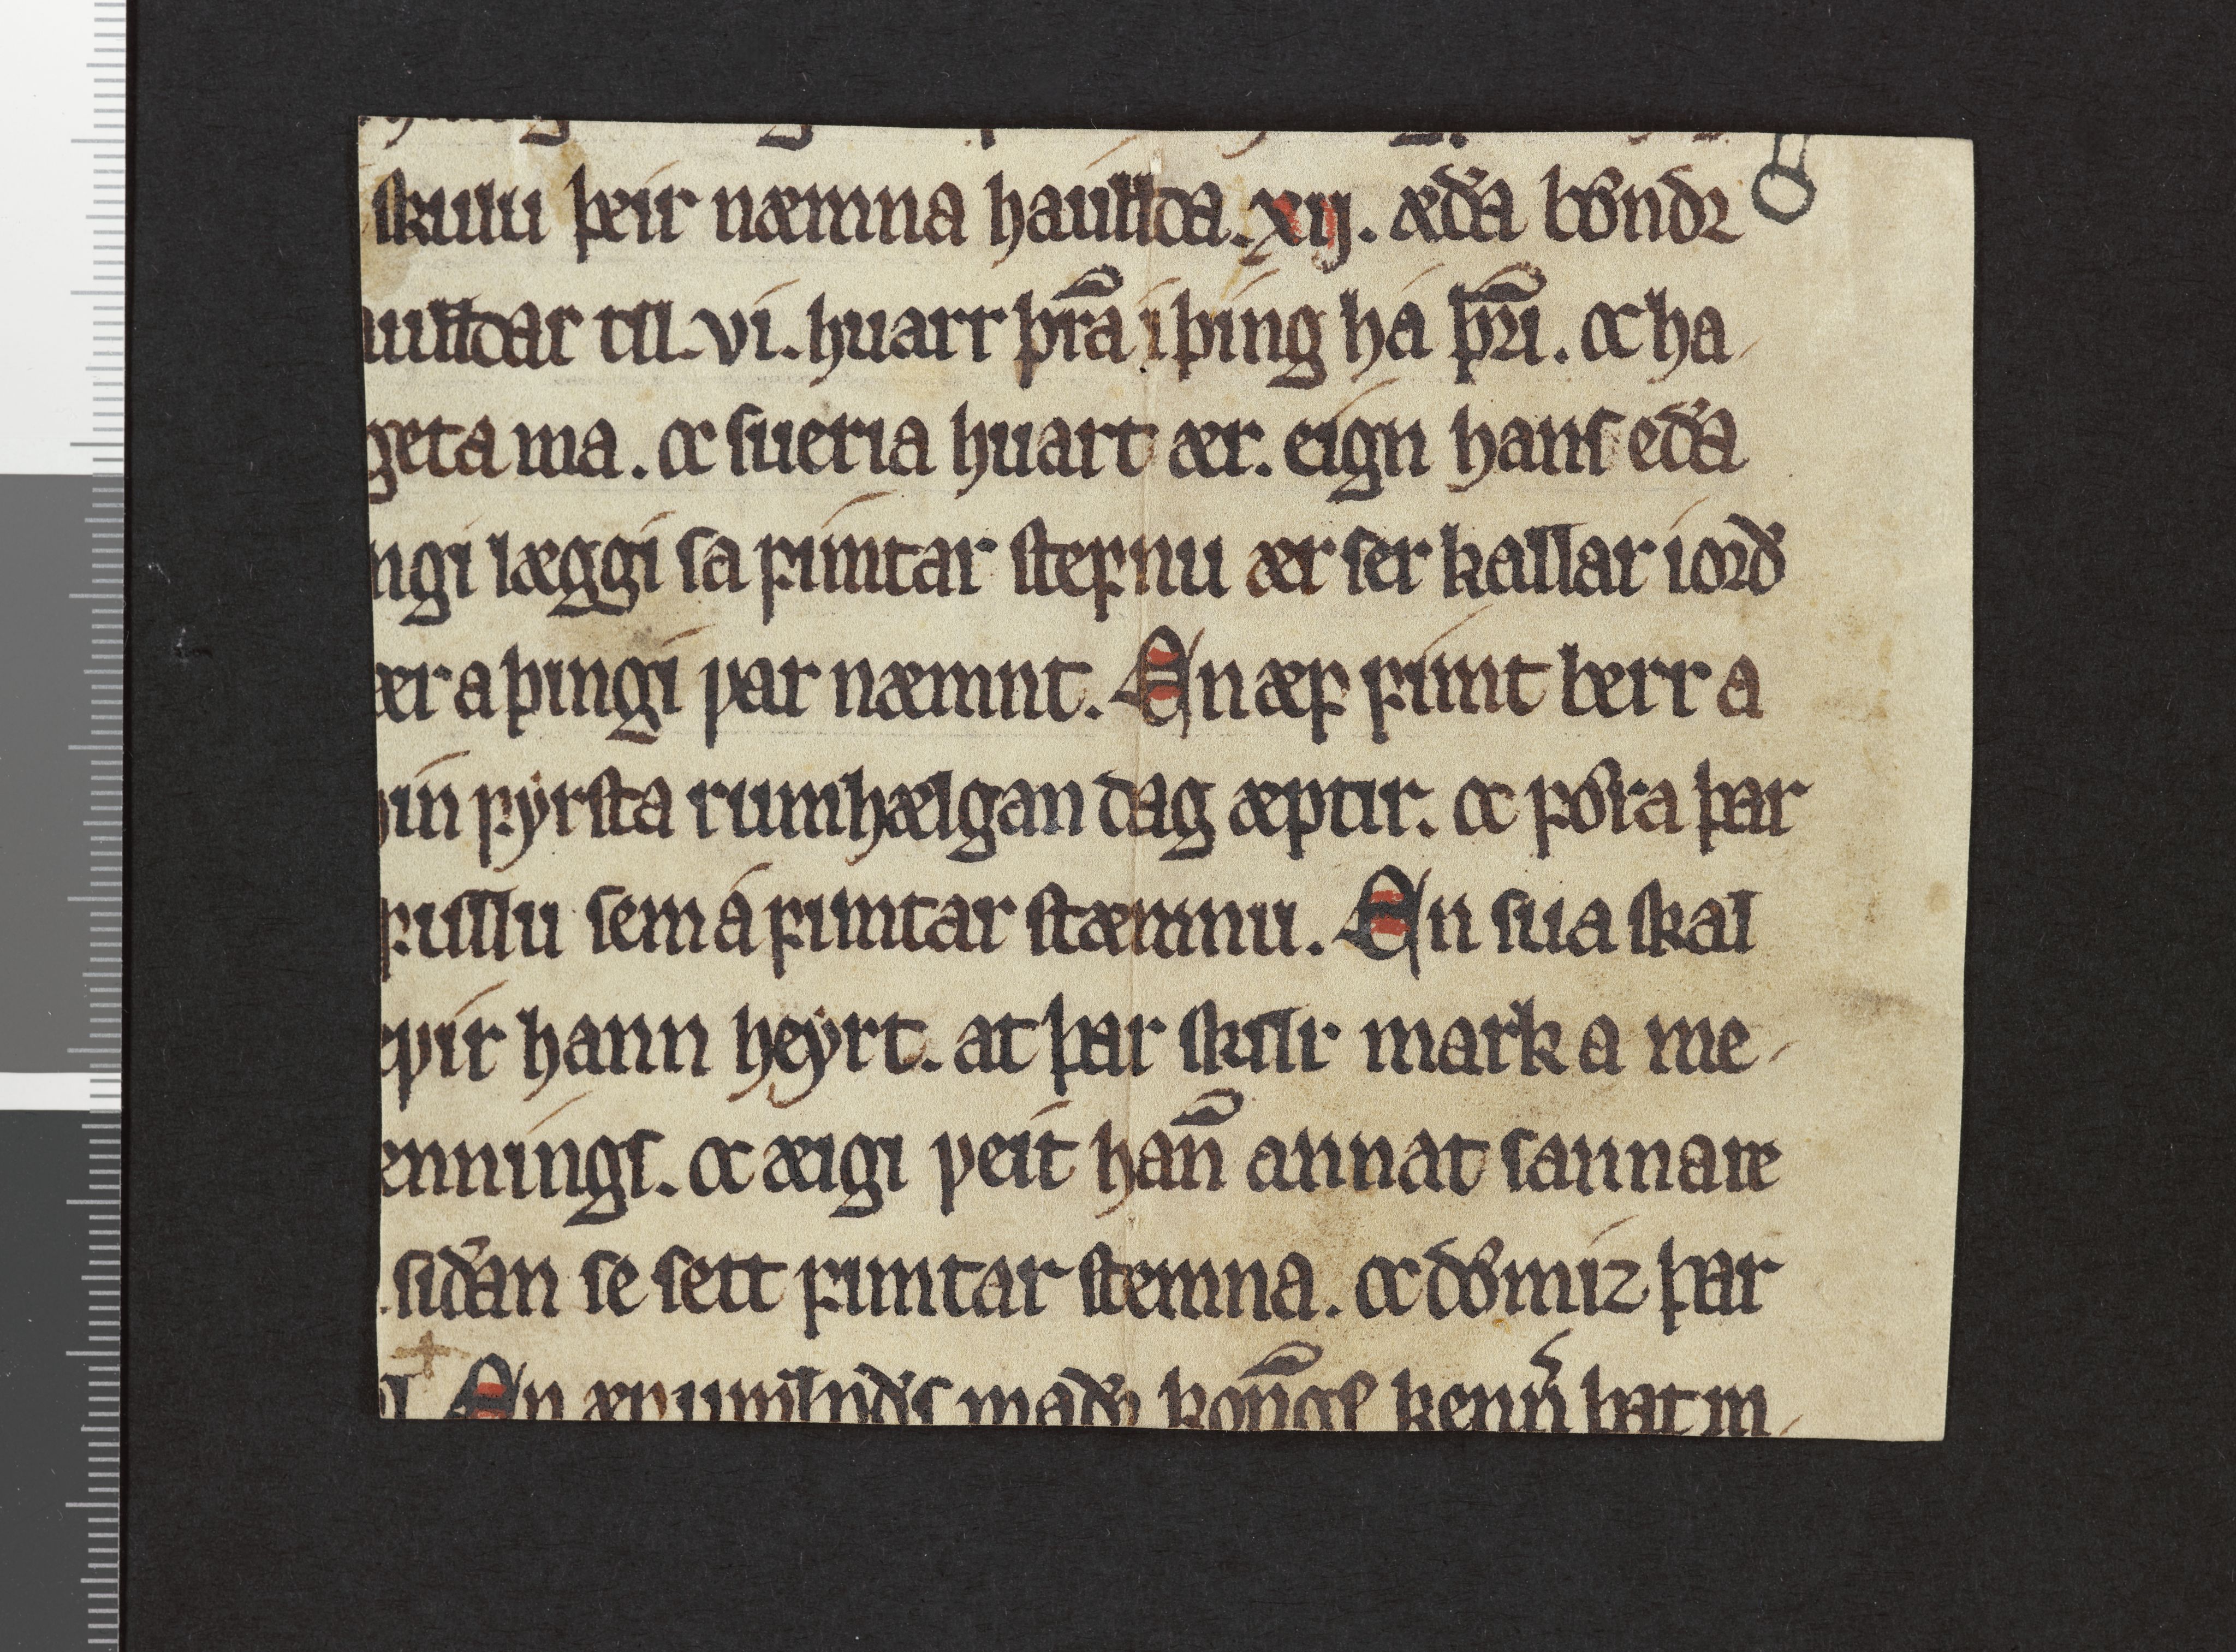 skulu þeir næmna haullda. xij. æða bǿndꝛ
aulldar till. vi. huarr þr̅a i þing há þꝛ̅i. ok ha
geta ma. ok sueria huart ær. eign hans eða
ngi læggi sa fimtar stefnu ær ser kallar iorð
ær a þingi var næmnt. En æf fimt berr a
in fyrsta rumhælgan dag æptir. ok fǿra þar
fullu sem á fimtar stæmnu. En sua skal
æpir hann heyrt. at þar skilr mark a me
ennings. ok æigi veit han̅ annat sannare
. siðan se sett fimtar stemna. ok dǿmiz þar
En æf umbuðs maðr kon̅gs kenn̅ þat m